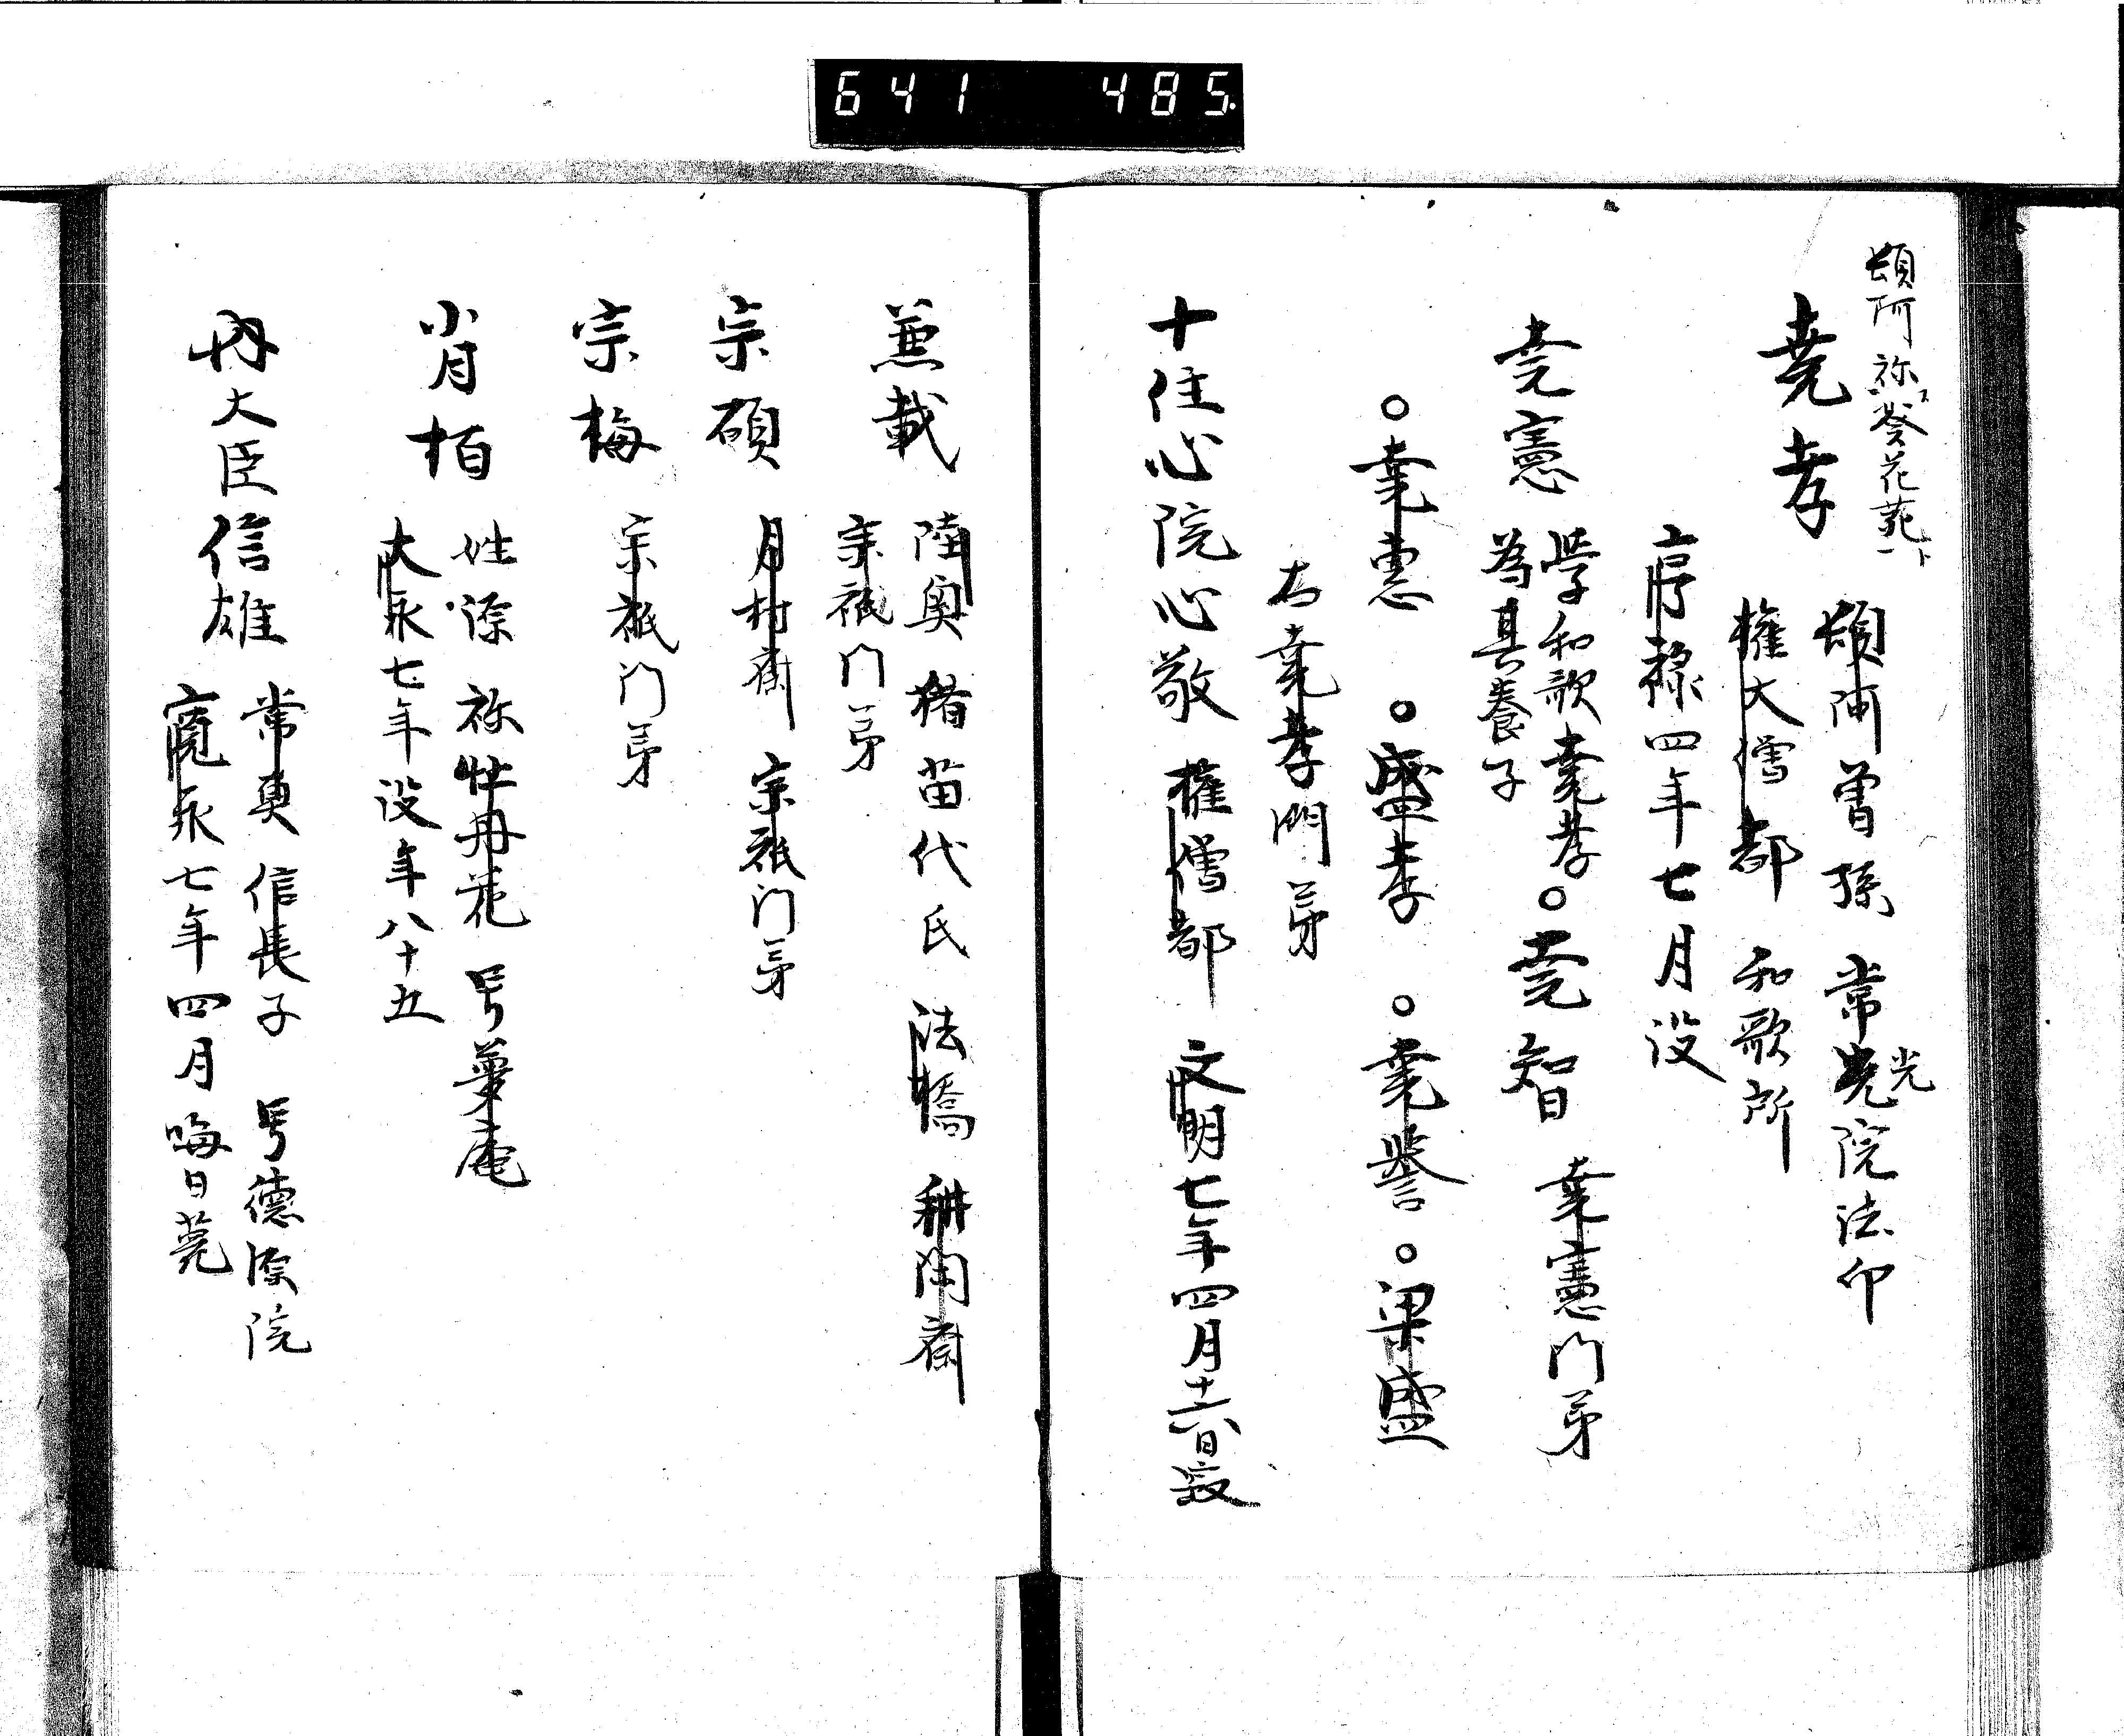 641 485
頓阿祢葵花苑ト
堯孝
頓阿曽孫 常堯院法印
光
権大僧都 和歌所
享禄四年七月没
堯憲
学和歌堯孝
為其養子
○堯智
堯憲門弟
○堯恵 ○盛孝 ○堯誉 ○梁盛
右堯孝門弟
十住心院心敬 権僧都 文明七年四月十六日寂
兼載
陸奥猪苗代氏 法橋 耕閑斎
宗祇门弟
宗碩 月村斎 宗祇门弟
宗梅 宗祇门弟
肖柏
姓源 祢牡丹花 号夢庵
大永七年没年八十五
内大臣信雄
常真 信長子 号徳源院
寛永七年四月晦日薨